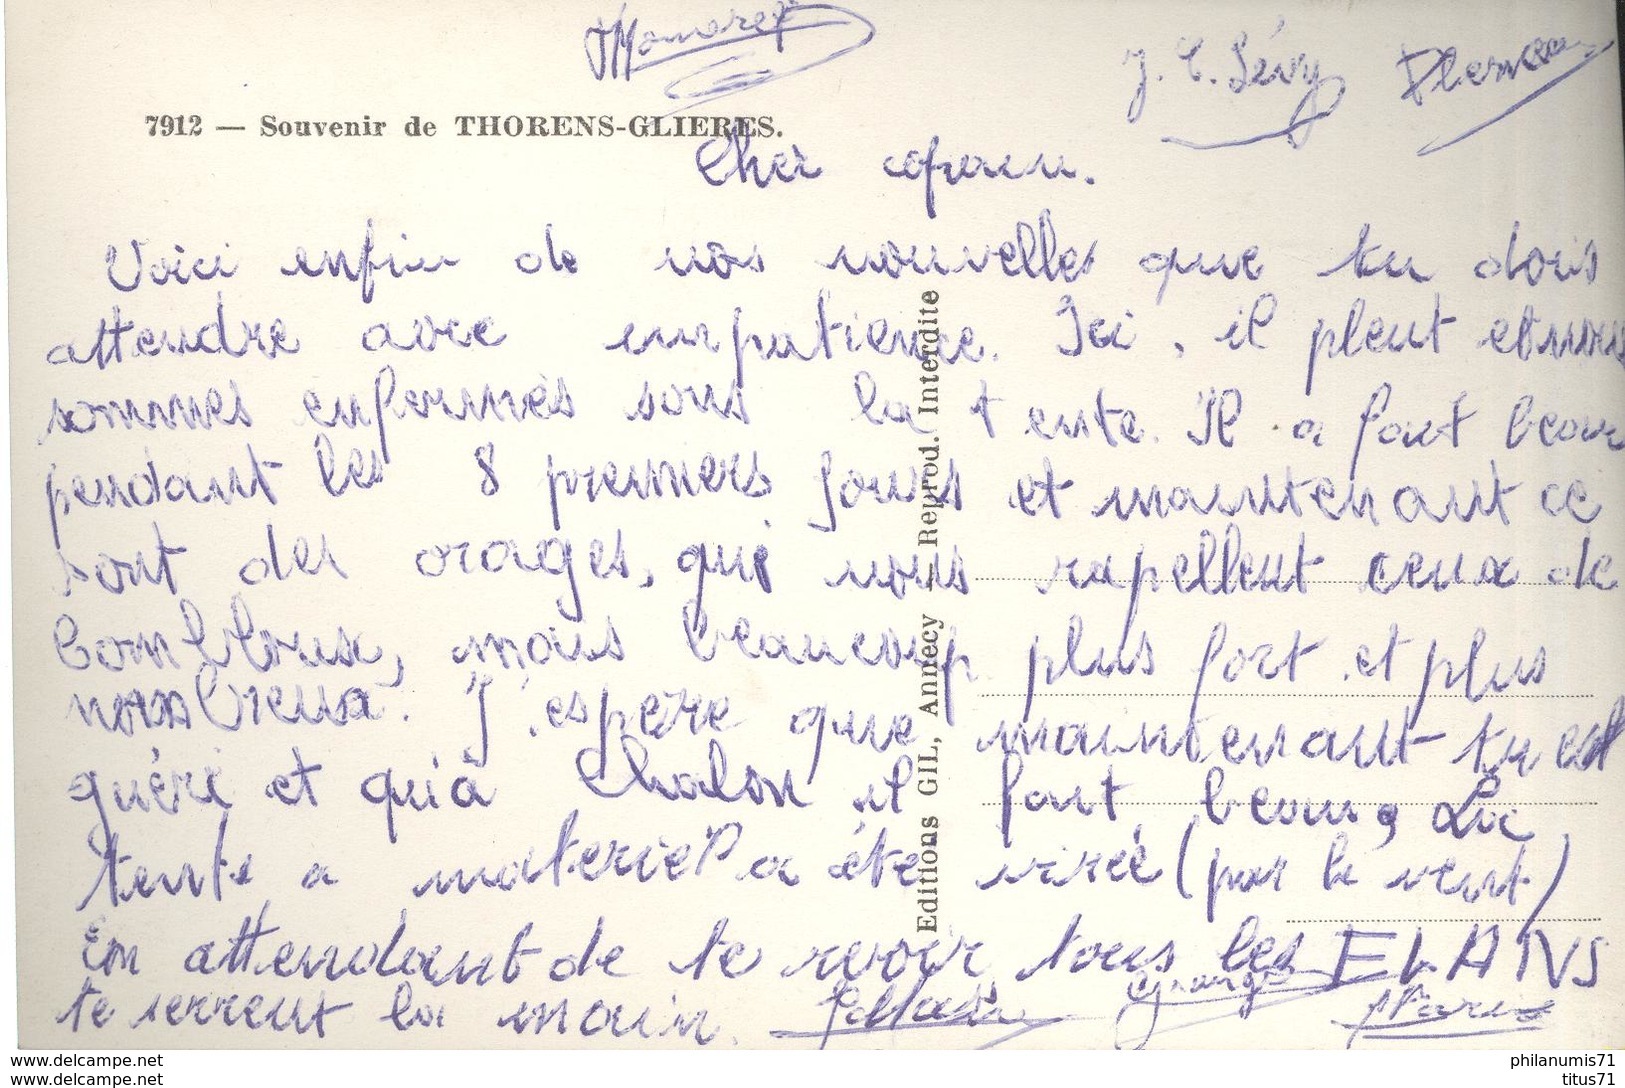 J. C. Lévy
7912 — Souvenir de THORENS-GLIERES.
Cher copain.
Voici enfin de nos nouvelles que tu dois
attendre avec impatience. Ici, il pleut et nous
sommes enfermés sous la tente. Il a fait beau
pendant les 8 premiers jours et maintenant ce
sont des orages, qui nous rapellent ceux de
Combloux, mais beaucoup plus fort et plus
nombreux. J'espère que maintenant tu est
guéri et qu'à Chalon il fait beau, La
tente a materiel a été virée (par le vent)
En attendant de te revoir tous les ELANS
te serrent la main.
Editions GIL, Annecy — Reprod. Interdite
www.delcampe.net
www.delcampe.net
philanumis71
titus71